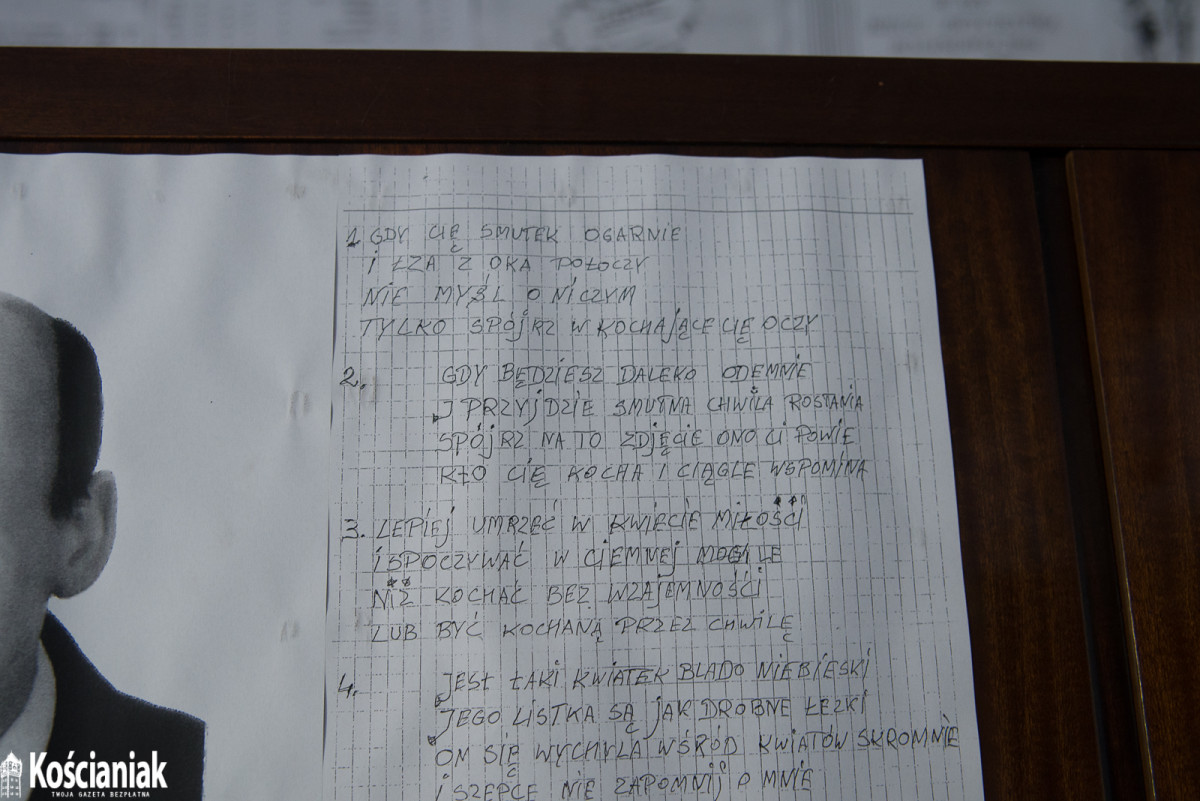 1. GDY CIĘ SMUTEK OGARNIE
I ŁZA Z OKA POTOCZY
NIE MYŚL O NICZYM
TYLKO SPÓJRZ W KOCHAJĄCE CIĘ OCZY
2. GDY BĘDZIESZ DALEKO ODEMNIE
I PRZYJDZIE SMUTNA CHWILA ROSTANIA
SPÓJRZ NA TO ZDJĘCIE ONO CI POWIE
KTO CIĘ KOCHA I CIĄGLE WSPOMINA
3. LEPIEJ UMRZEĆ W KWIECIE MIŁOŚCI
I SPOCZYWAĆ W CIEMNEJ MOGILE
NIŻ KOCHAĆ BEZ WZAJEMNOŚCI
LUB BYĆ KOCHANĄ PRZEZ CHWILĘ
4. JEST TAKI KWIATEK BLADO NIEBIESKI
JEGO LISTKA SĄ JAK DROBNE ŁEZKI
ON SIĘ WYCHYLA WŚRÓD KWIATÓW SKROMNIE
I SZEPCE NIE ZAPOMNIJ O MNIE
Kościaniak
TWOJA GAZETA BEZPŁATNA